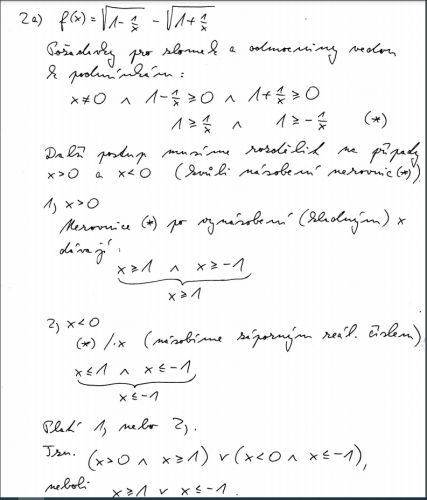 2a) f(x) = √(1 - 1/x) - √(1 + 1/x)
Požadavky pro zlomek a odmocniny vedou
k podmínkám:
x ≠ 0 ∧ 1 - 1/x ≥ 0 ∧ 1 + 1/x ≥ 0
1 ≥ 1/x ∧ 1 ≥ -1/x (*)
Další postup musíme rozdělit na případy
x > 0 a x < 0 (kvůli násobení nerovnic (*))
1, x > 0
Nerovnice (*) po vynásobení (kladným) x
dávají:
x ≥ 1 ∧ x ≥ -1
x ≥ 1
2, x < 0
(*) /·x (násobíme záporným reál. číslem)
x ≤ 1 ∧ x ≤ -1
x ≤ -1
Platí 1, nebo 2,.
Tzn. (x > 0 ∧ x ≥ 1) ∨ (x < 0 ∧ x ≤ -1),
neboli x ≥ 1 ∨ x ≤ -1.